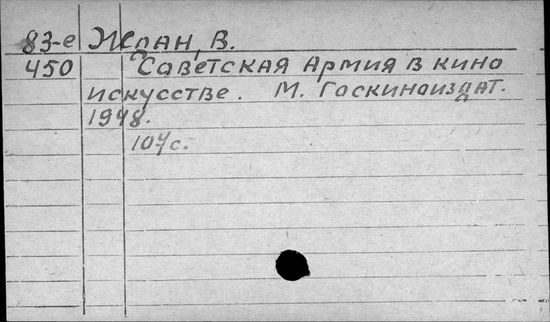 83-е Ждан, В.
450 Советская Армия в кино
искусстве. М. Госкиноиздат.
1948.
104с.